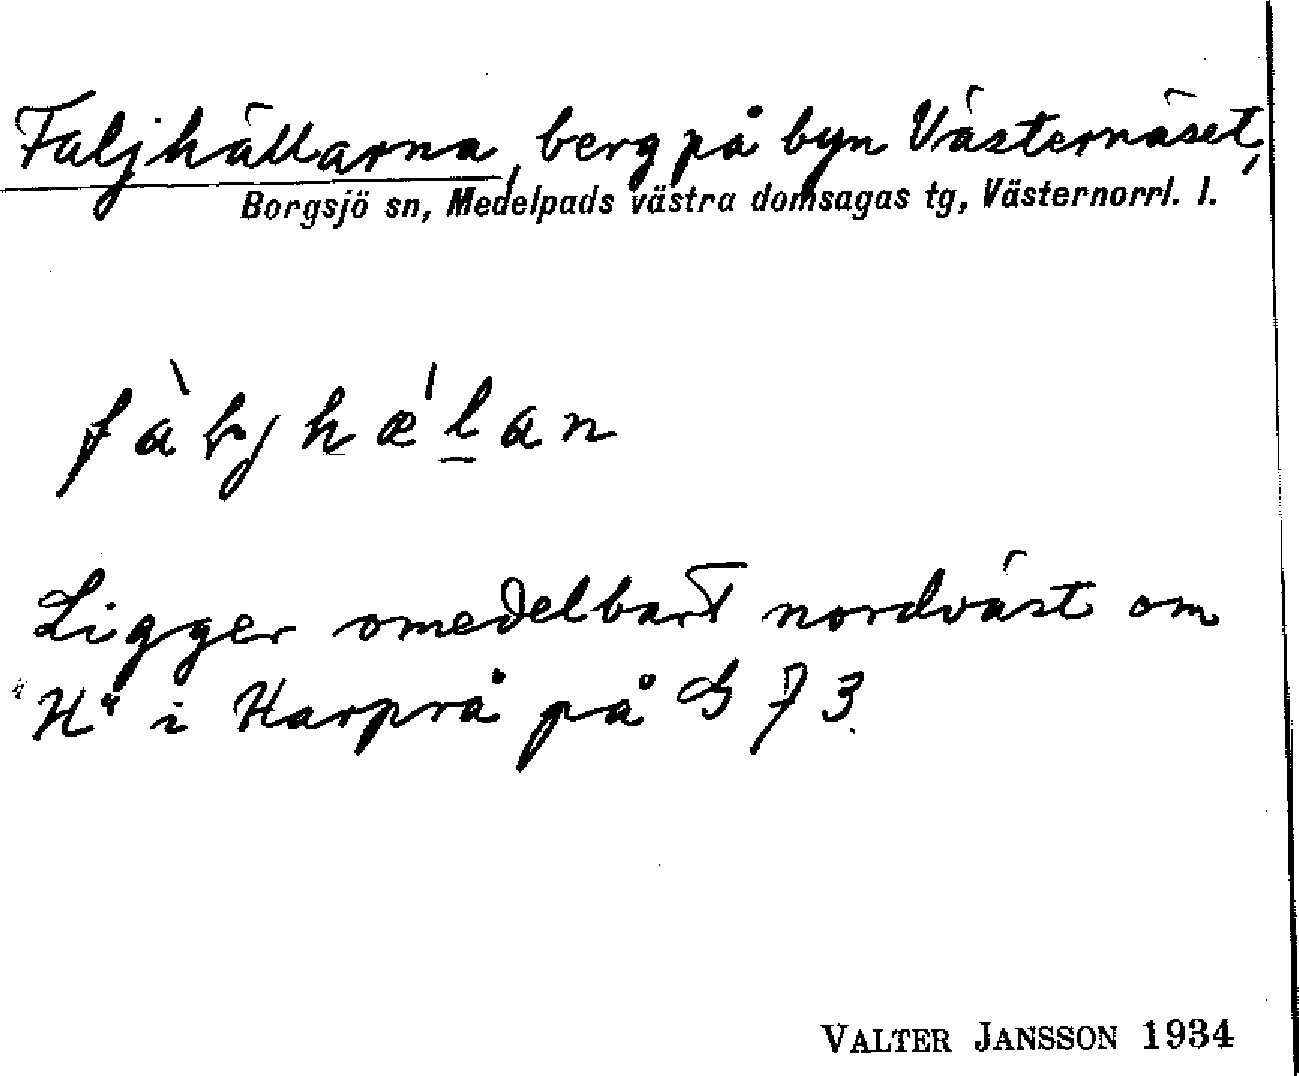 Faljhällarna, berg på byn Västernäset,
Borgsjö sn, Medelpads västra domsagas tg, Västernorrl. l.
Ligger omedelbart nordväst om
"H" i Harprå på G F 3.
VALTER JANSSON 1934